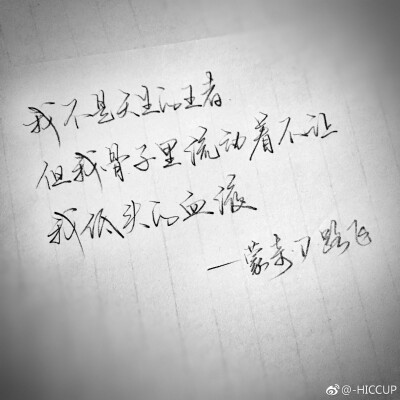 我不是天生的王者
但我骨子里流动着不让
我低头的血液
—蒙奇D路飞
@-HICCUP